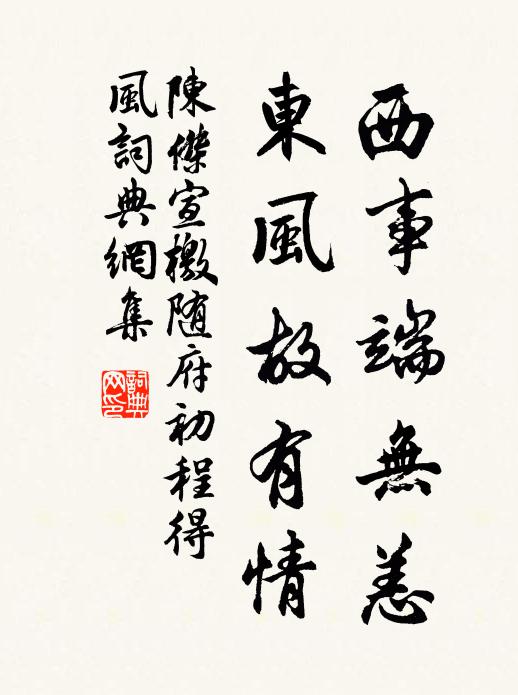 西事端無恙
東風故有情
陳傑宣檄随府初程得
風詞典網集
詞典
网印